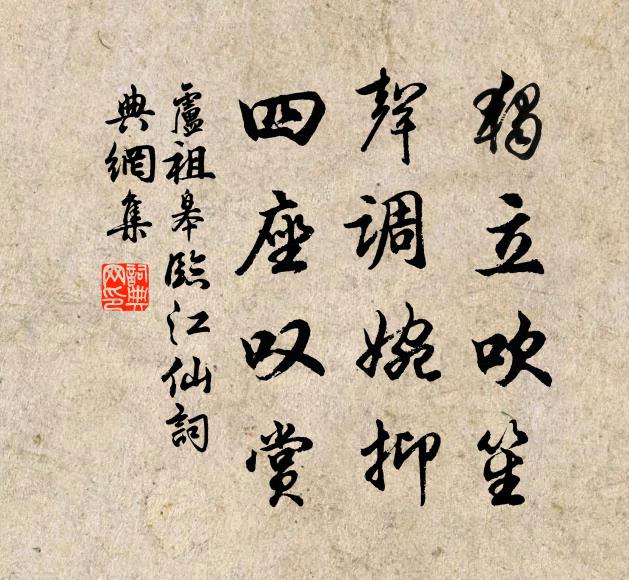 獨立吹笙
聲調婉抑
四座叹賞
盧祖皋臨江仙詞
典網集
詞典網印